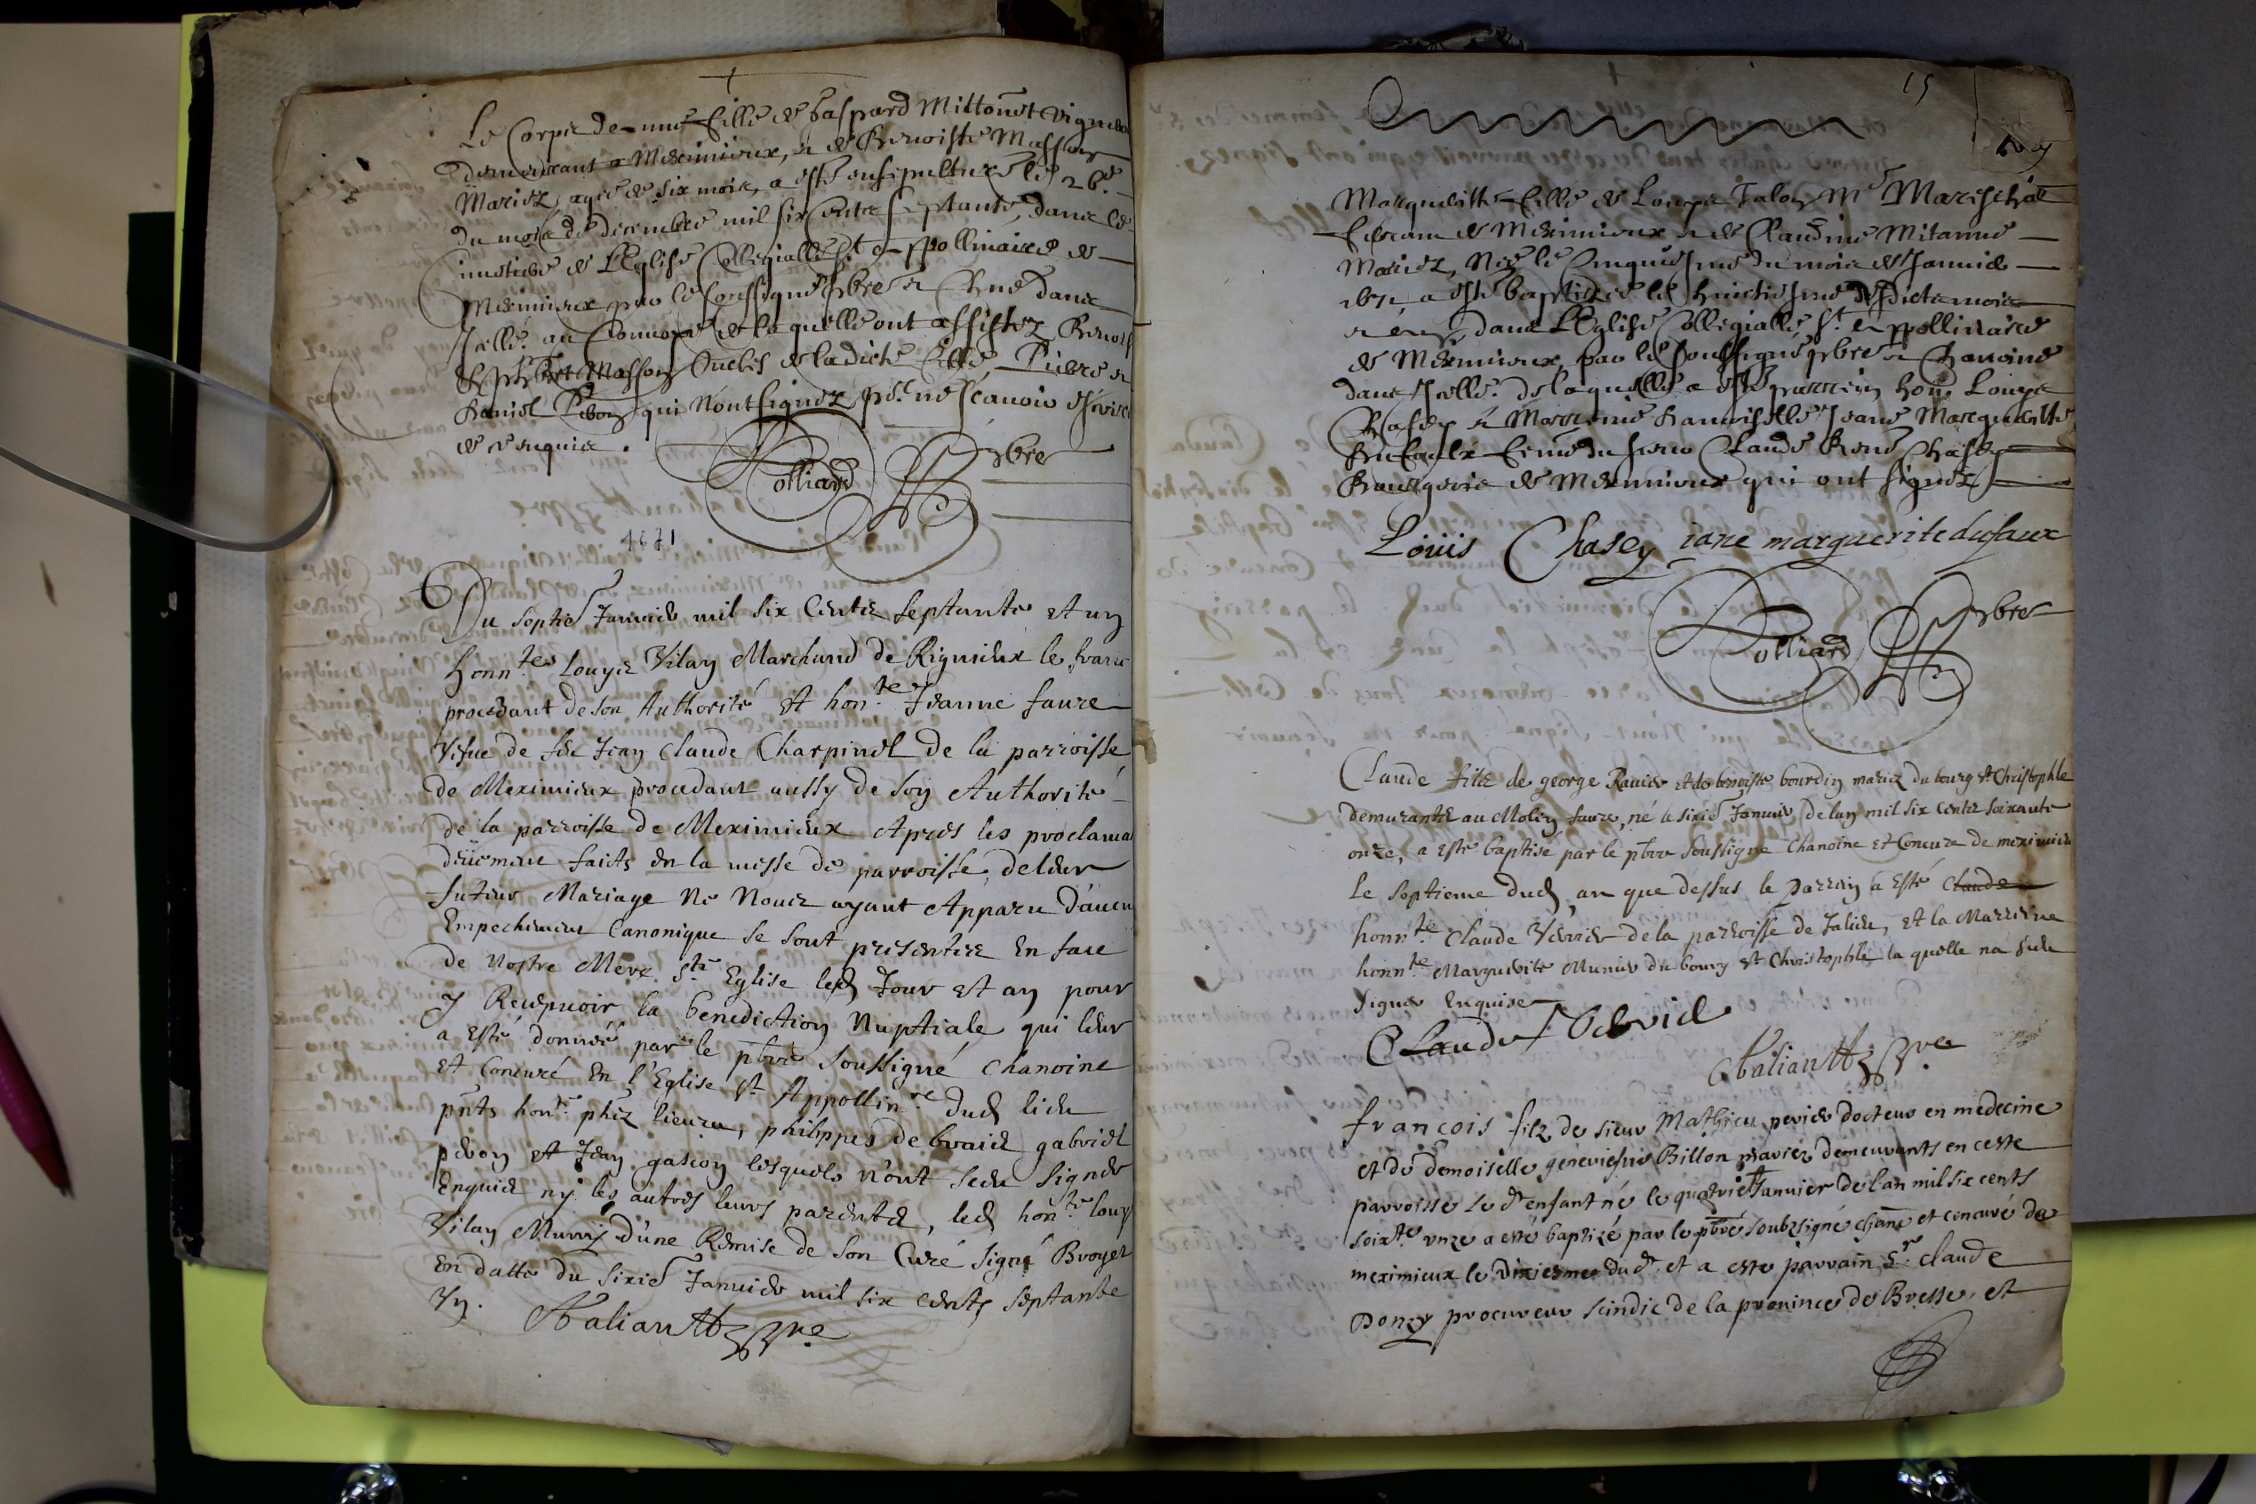 Le Corps de une fille de Gaspard Mittonet vigneron
demeurant a Meximieux, & de Benoiste Masson
Mariez, agée de six mois, a esté ensepulturée le 26e
du mois de decembre mil six cents septante, dans le
de L'Eglise Collegialle St Appollinaire de
Meximieux par le soussigné pbre & Chne dans
Icelle. au Convoy de laquelle ont assistez Benoist
Masson Oncles de ladicte fille, Pierre &
qui n'ont signez pr. ne scavoir escrire
de ce enquis.
Rolliard pbre
1671
Du septie Janvier mil six Cents septante et un
honnte Louys Vilan Marchand de Rignieux le franc
procedant de son Authorité et honte Jeanne faure
Vefue de feu Jean Claude Charpinel de la parroisse
de Meximieux procedant aussy de son Authorité
de la parroisse de Meximieux Apres les proclama
düemant faicts en la messe de parroisse, de leur
futeur Mariage Ne Nous ayant Apparu d'aucu
Empechement Canonique se sont presentez En face
de Nostre Mere Ste Eglise lesd Jour et an pour
y Recepuoir la benediction Nuptiale qui leur
a Esté donnée par le pbre soussigné Chanoine
Et Concuré En l'Eglise St Appollinre dud lieu
pnts honte phiz lieura, philippes de braiez gabriel
pebon et Jean gascon lesquels n'ont sceu signer
Enquis ny les autres leurs parents, led honte louys
Vilan Muny d'une Remise de son Curé signé Broyer
En datte du sixie Januier mil six cents septante
Vn. Chaliandtz pbre
15
Marguerite fille de Louys Talon Me Mareschal
ferrant de Meximieux & de Claudine Mitanne
Mariez, Née le Cinquiesme du mois de Januier
1671 a esté baptizée le huictiesme desdicts mois
& an dans L'Eglise Collegialle St Appollinaire
de Meximieux, par le soussigné pbre & Chanoine
dans Icelle. de laquelle a esté parrein hon. Louys
Chasey & Marreine damoiselle Jeane Marguerite
Dufaulx femme du sieur Claude René Chasey
Bourgeois de Meximieux qui ont signez
Louis Chasey iane marguerite dufaux
Rolliard pbre
Claude filz de george Ravier et de benoiste bourdin mariez du bourg St Christophle
demurants au Molin faure, né le sixie Januier de l'an mil six cents soixante
onze, a esté baptisé par le pbre soussigné Chanoine Et Concuré de meximieu
le septieme dud, an que dessus le parrin a Esté Claude
honnte Claude Verrier de la parroisse de Jalieu, et la Marrienne
honnte Marguerite Munier du bourg St Christophle la quelle na sceu
signer Enquise
Claude
Chaliandtz pbre
françois filz de sieur Mathieu perier docteur en medecine
et de demoiselle geneviesue Billon mariez demeurants en ceste
parroisse le d enfant né le quatrie Januier de l'an mil six cents
soixte vnze a esté baptizé par le pbre soubsigné chane et concuré de
meximieux le dixiesme dud. et a este parrain Sr claude
Donzy procureur scindic de la prouince de Bresse, et